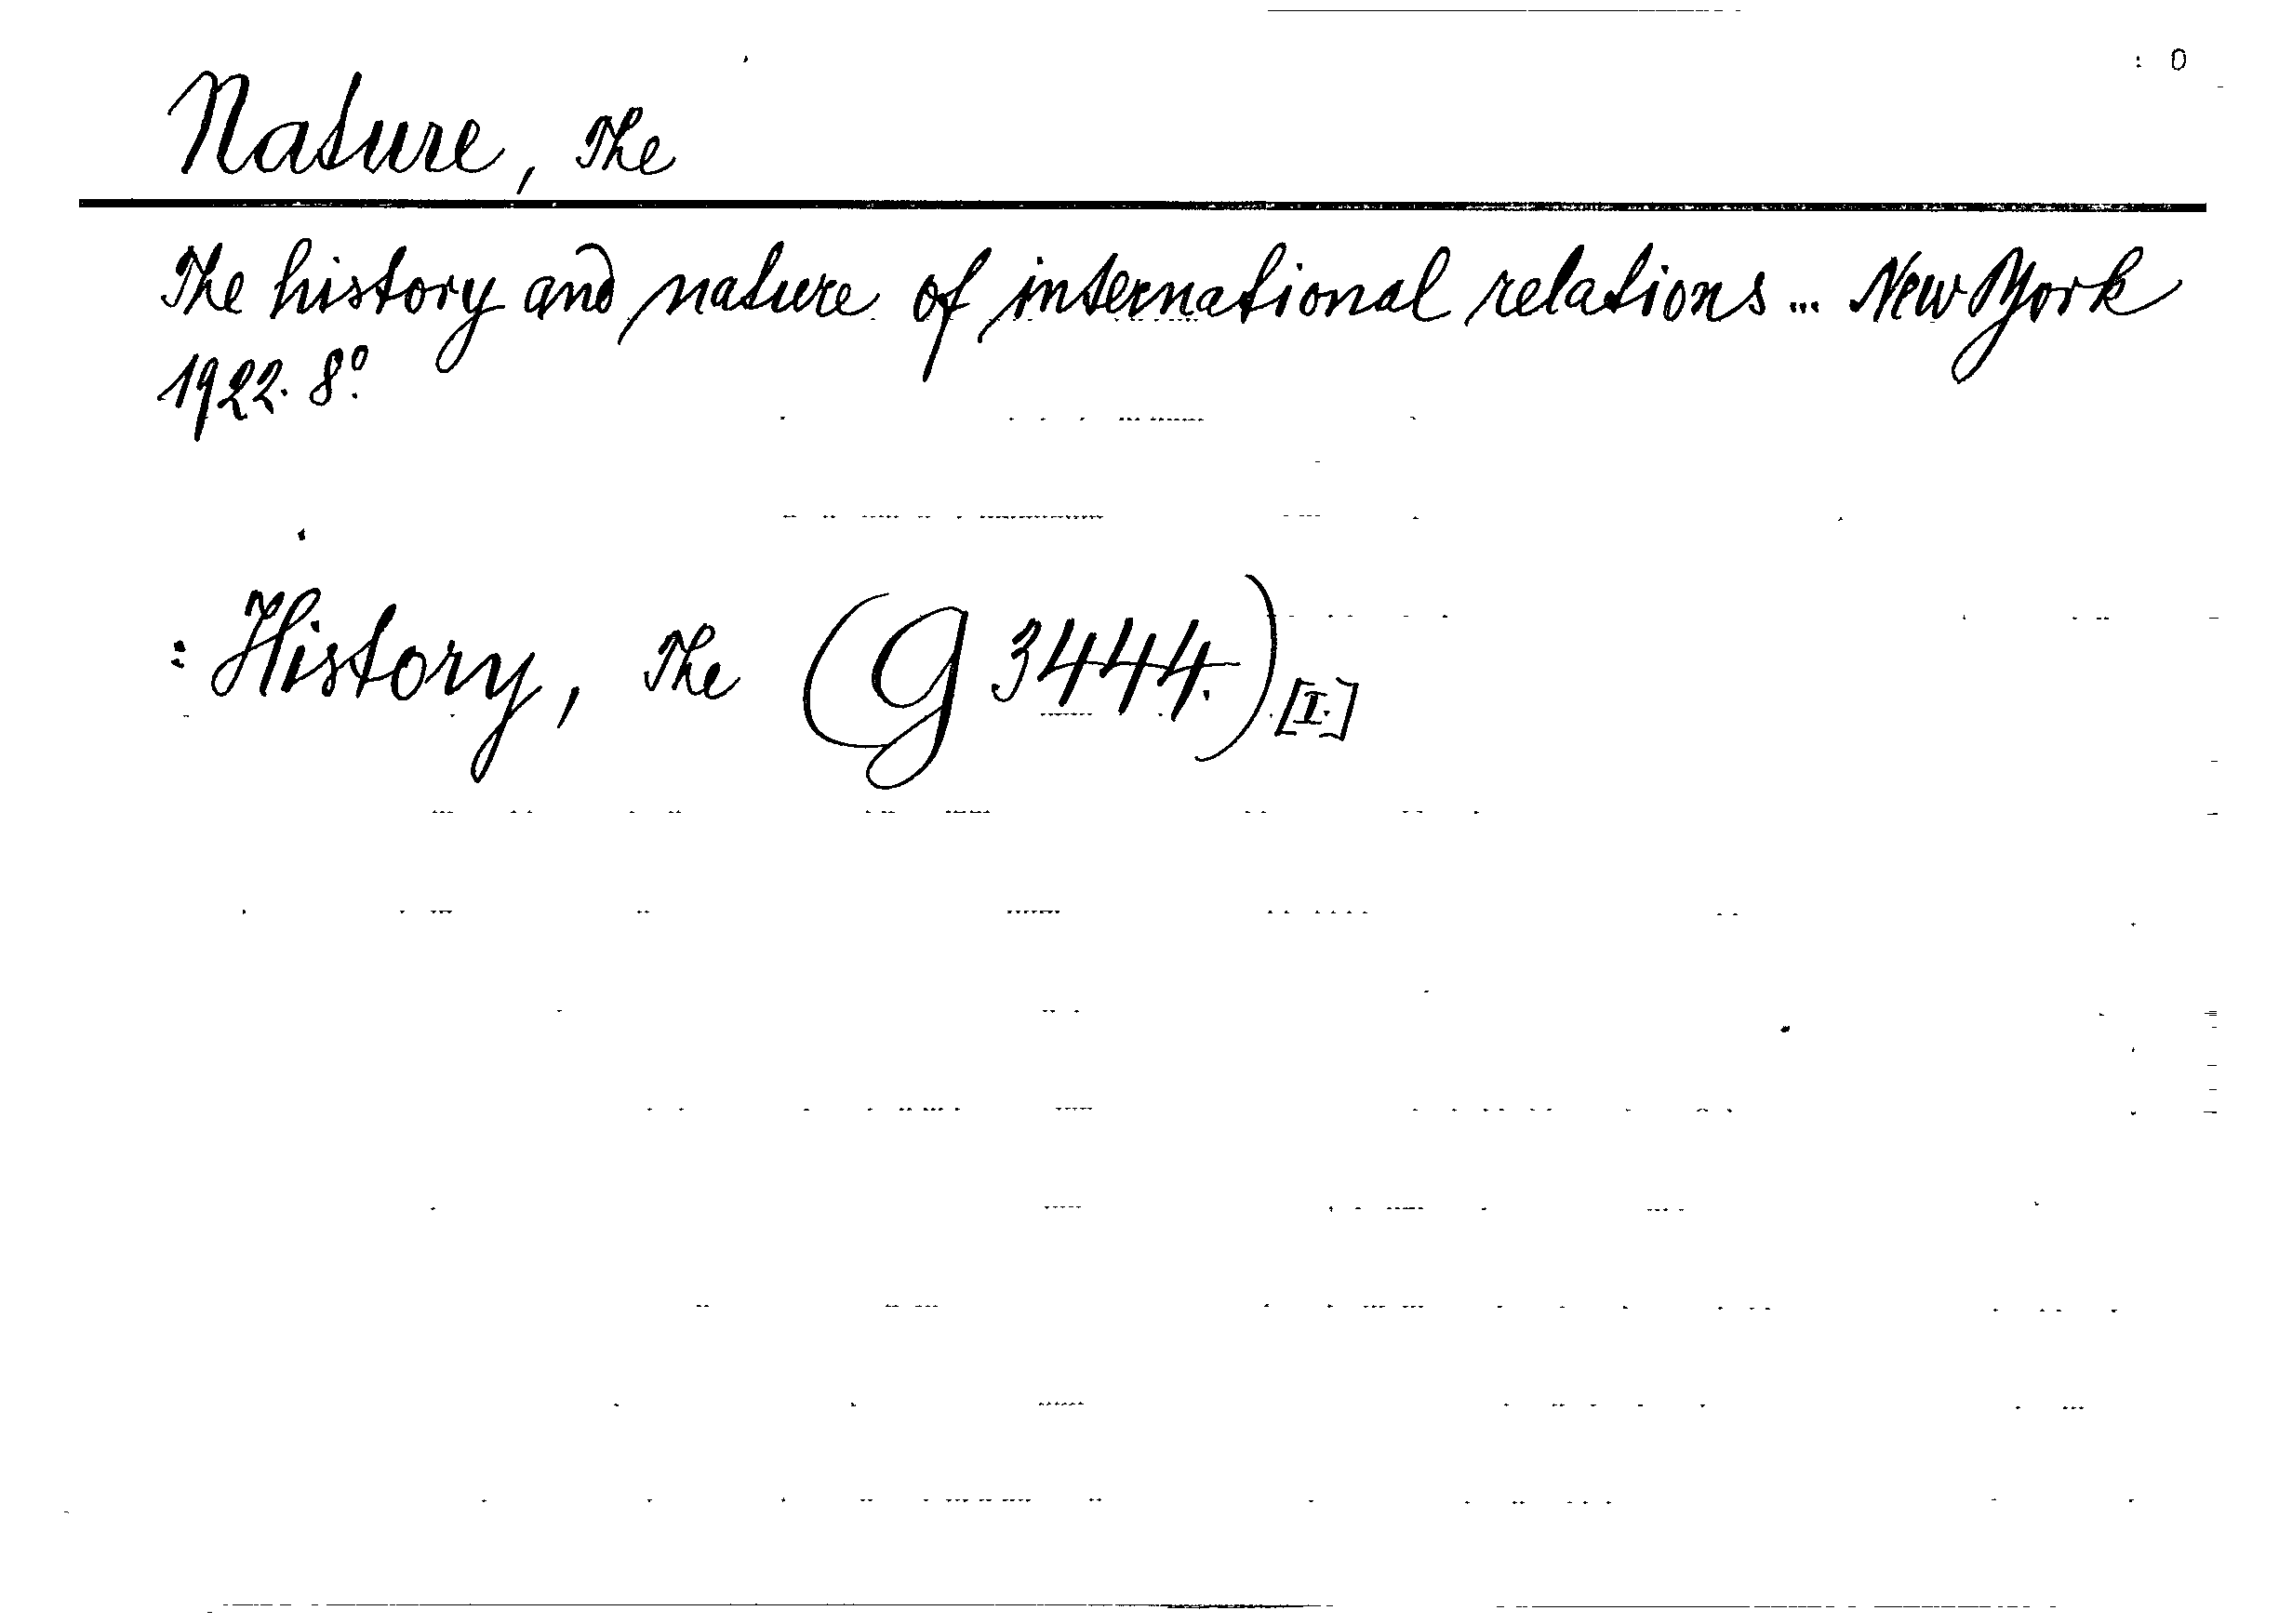 : 0
Nature, The
The history and nature of international relations ... New York
1922. 8º.
: History, The (G 3444.) [I.]